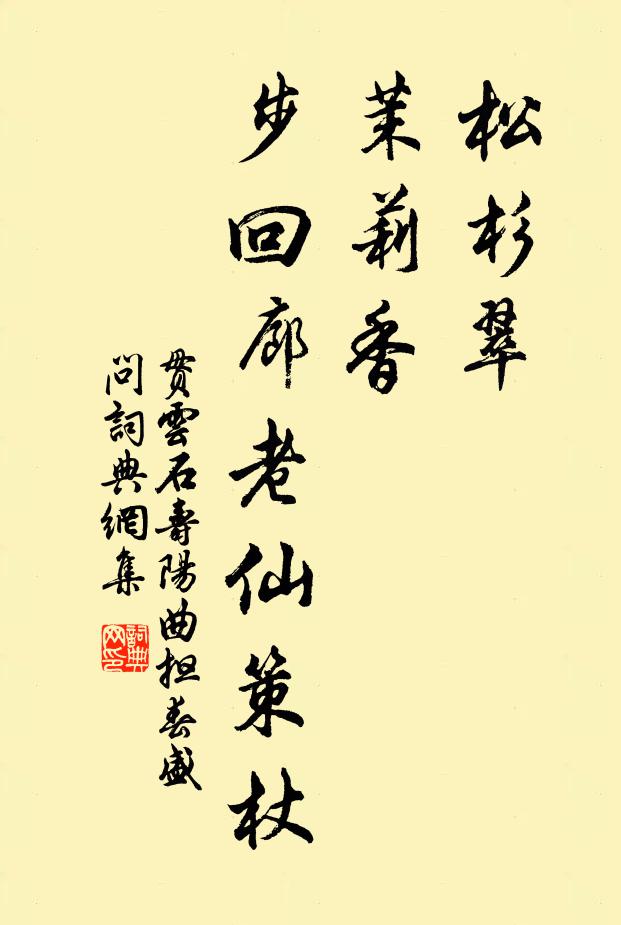 松杉翠
茉莉香
步回廊老仙策杖
贯雲石壽陽曲担春盛
問詞典網集
詞典
网印